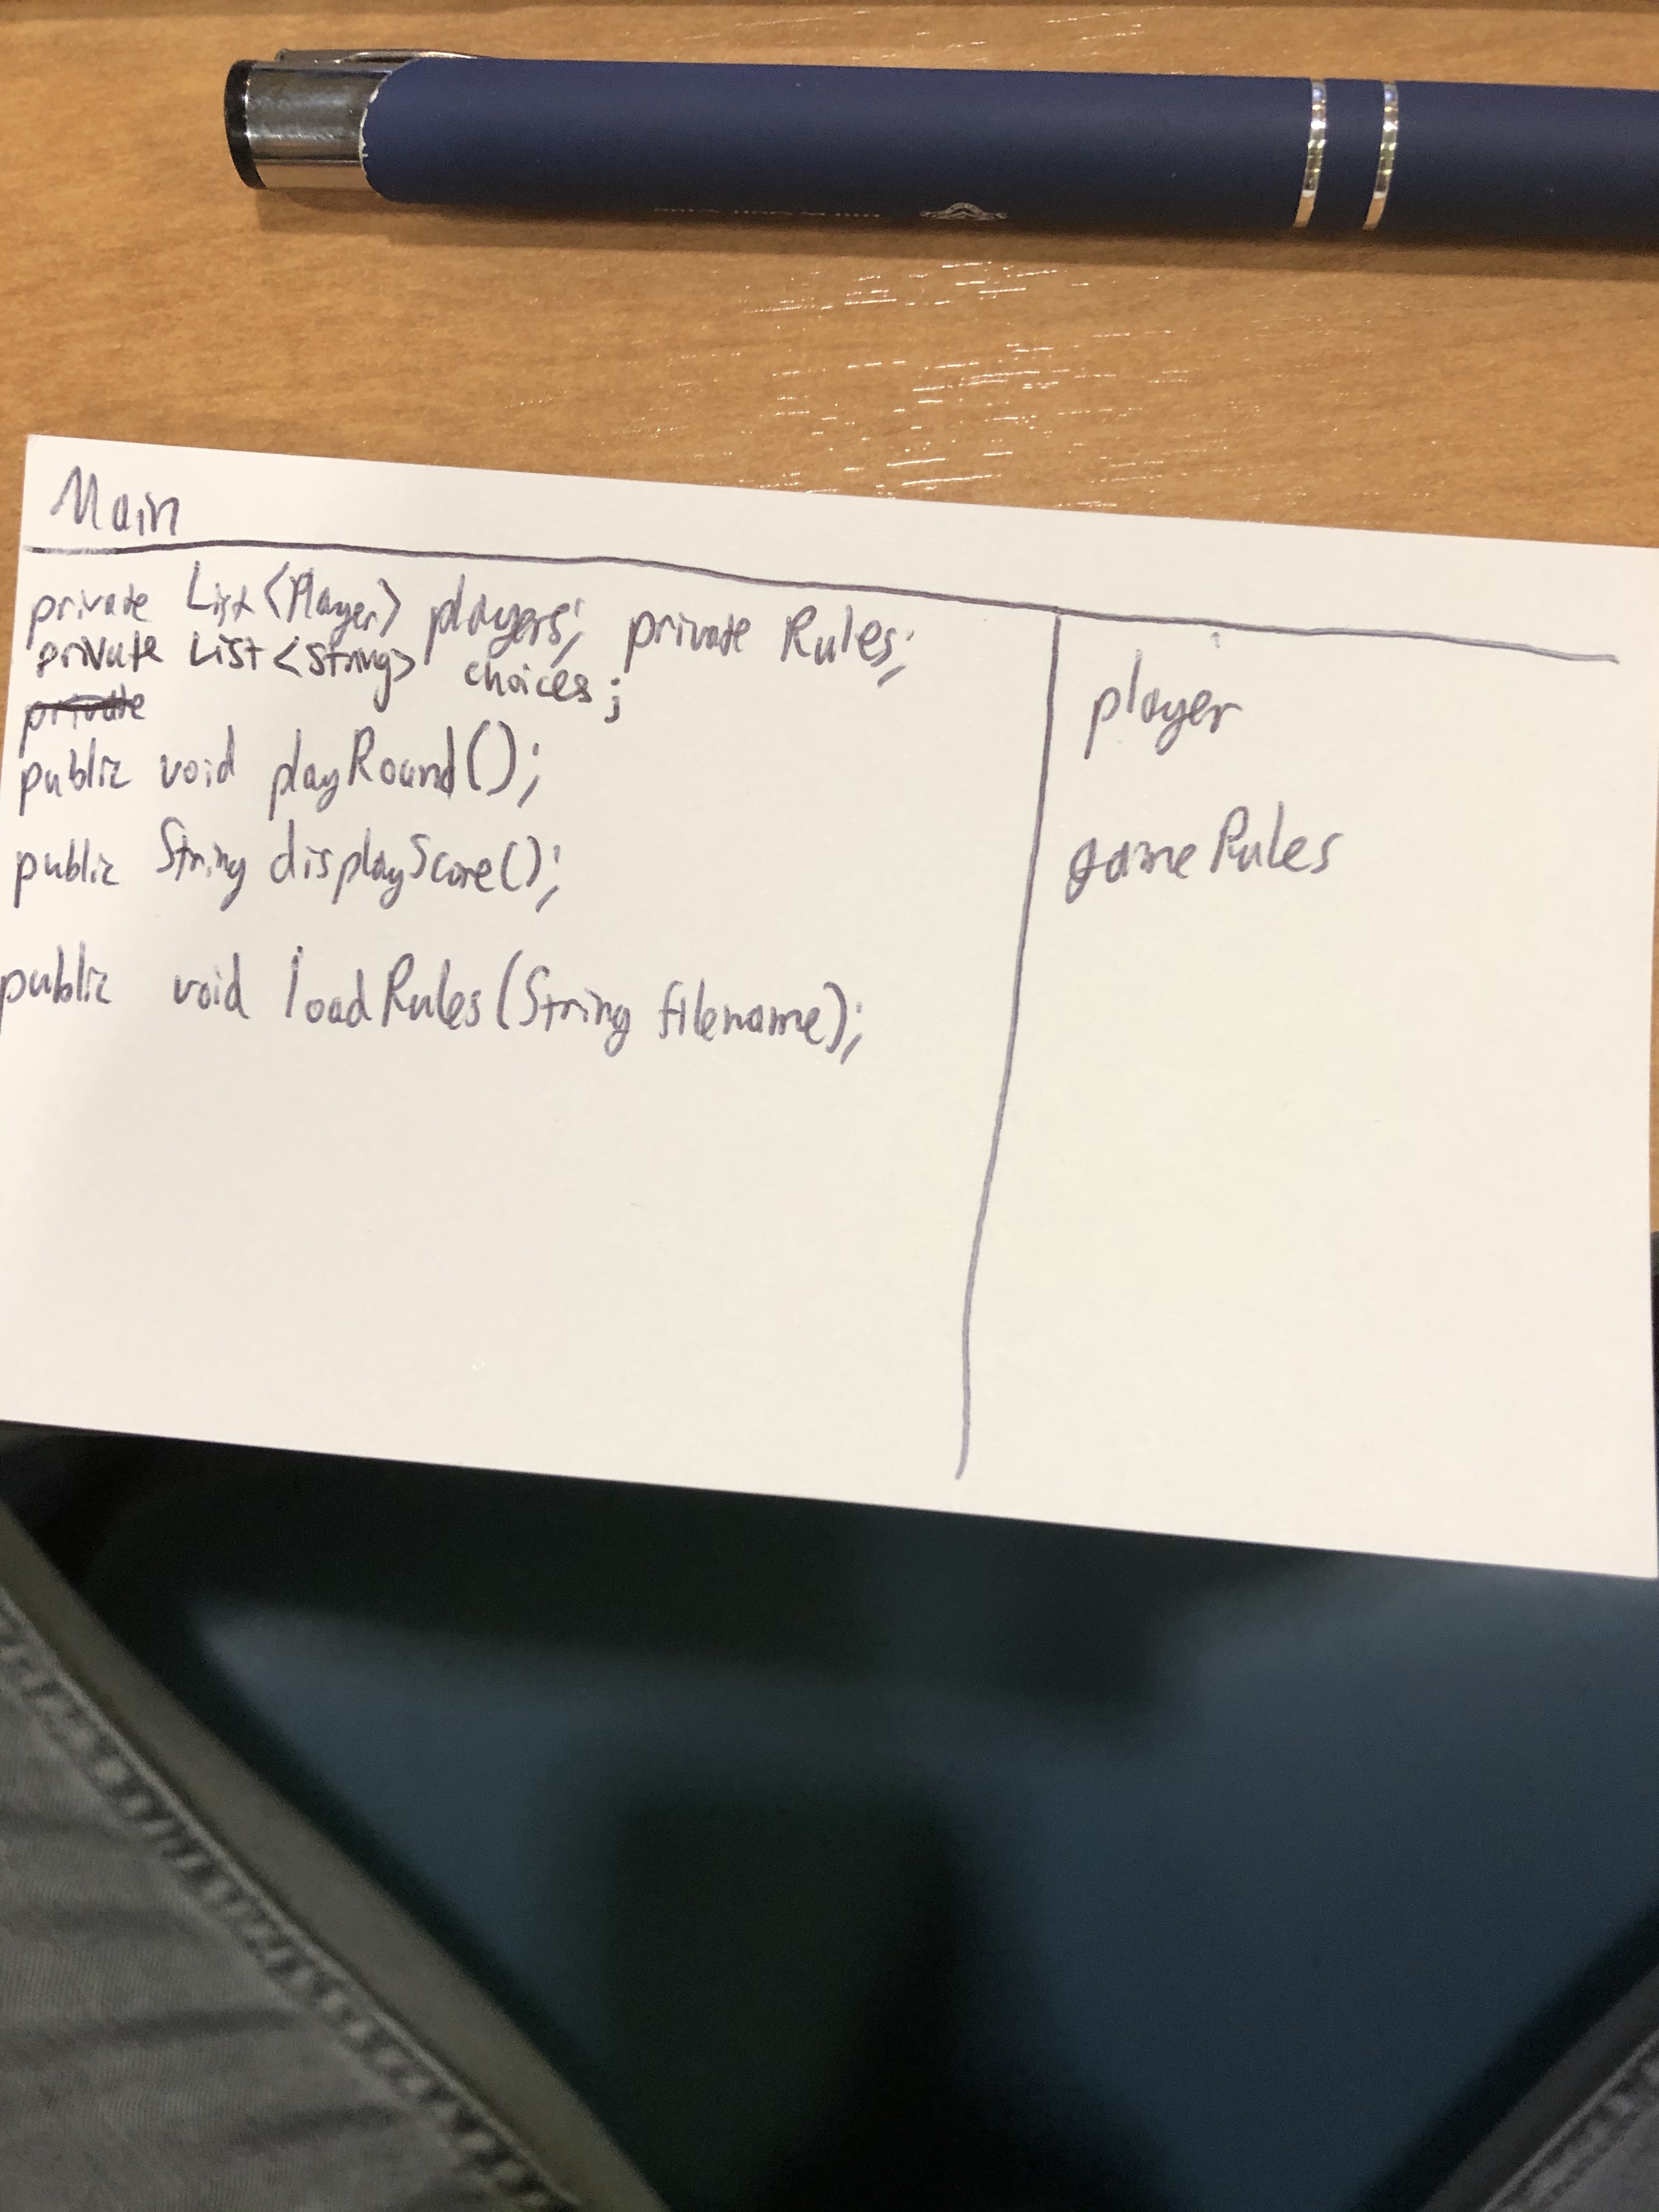 Main
private List<Player> players; private Rules;
private List<String> choices;
private
public void playRound();
public String displayScore();
public void loadRules(String filename);
player
gameRules